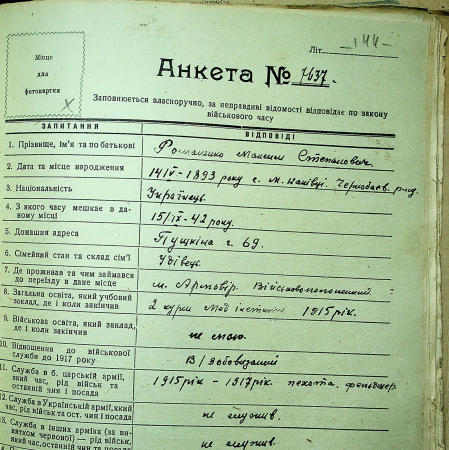 Літ. — 144 —
Місце
для
фотокартки
Анкета № 7637.
Заповнюється власноручно, за неправдиві відомості відповідає по закону
військового часу
ЗАПИТАННЯ ВІДПОВІДІ
1. Прізвище, ім'я та по батькові Максим Степанович
2. Дата та місце народження 14/IV-1893 року с. М. Канівці Чорнобаєв. р-ну
3. Національність Українець.
4. З якого часу мешкає в да-
ному місці 15/IX-42 року.
5. Домашня адреса Пушкіна ч. 69.
6. Сімейний стан та склад сім'ї Удівець.
7. Де проживав та чим займався
до переїзду в дане місце м. Армавір.
8. Загальна освіта, який учбовий
заклад, де і коли закінчив 2 курси Мед. 1915 рік.
9. Військова освіта, який заклад,
де і коли закінчив не маю.
10. Відношення до військової
служби до 1917 року В/зобовязаний
11. Служба в б. царській армії,
який час, рід військ та
останній чин і посада 1915 рік - 1917 рік. пехота. фельдшер
12. Служба в Українській армії, який
час, рід військ та ост. чин і посада не служив.
13. Служба в інших арміях (за ви-
нятком червоної) — рід військ,
який час, останній чин та посада не служив.